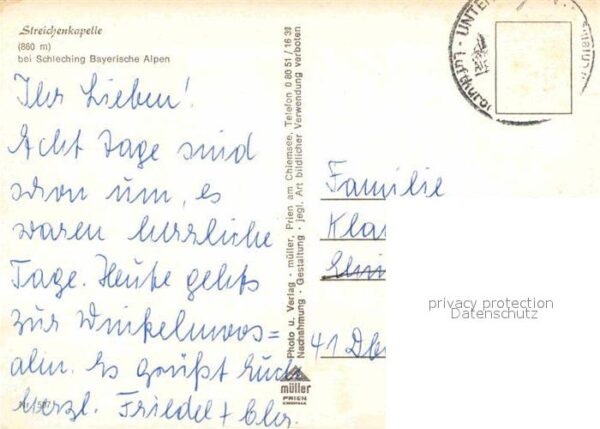 Streichenkapelle
(860 m)
bei Schleching Bayerische Alpen
Ihr Lieben!
Acht Tage sind
schon um, es
waren herrliche
Tage. Heute gehts
zur Winkelmoos=
alm. Es grüßt Euch
herzl. Friedel +
Photo u. Verlag · müller, Prien am Chiemsee, Telefon 0 80 51 / 16 39
Nachahmung · Gestaltung · jegl. Art bildlicher Verwendung verboten
müller
PRIEN
CHIEMSEE
Familie
Kla
41 Dbg
privacy protection
Datenschutz
UNTER
Luftkuror